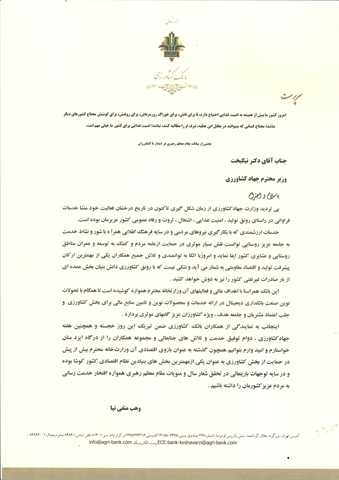 بسمه تعالی
بانک کشاورزی
سرپرست
امروز کشور ما بیش از همیشه به امنیت غذایی احتیاج دارد، تا برای نانش، برای خوراک روزمره‌اش، برای روغنش، برای گوشتش محتاج کشورهای دیگر
نباشد؛
امنیت غذایی برای کشور ما خیلی مهم است.
بخشی از بیانات مقام معظم رهبری در دیدار با کشاورزان
جناب آقای دکتر نیکبخت
وزیر محترم جهاد کشاورزی
با سلام و احترام
بی تردید، وزارت جهاد کشاورزی از زمان شکل گیری تاکنون در تاریخ درخشان فعالیت خود منشا خدمات
فراوانی در راستای رونق تولید، امنیت غذایی، اشتغال، ثروت و رفاه عمومی کشور عزیزمان بوده است.
خدمات ارزشمندی که با بکارگیری نیروهای مردمی و در سایه فرهنگ انقلابی همراه با شور و نشاط خدمت
به جامعه عزیز روستایی توانست نقش بسیار موثری در حمایت از عامه مردم و کمک به توسعه و عمران مناطق
روستایی و عشایری کشور ایفا نماید و امروز با اتکا به توانمندی و تلاش جمیع همکاران یکی از مهمترین ارکان
پیشرفت تولید و اقتصاد مقاومتی به شمار می آید و شکی نیست که با رونق کشاورزی دانش بنیان بخش عمده ای
از بار صادرات غیرنفتی کشور را نیز به دوش خواهد کشید.
این بانک همراستا با اهداف عالی و فعالیتهای آن وزارتخانه محترم همواره کوشیده است تا همگام با تحولات
نوین صنعت بانکداری دیجیتال در ارائه خدمات و محصولات نوین و تامین منابع مالی برای بخش کشاورزی و
جلب اعتماد مشتریان و جامعه هدف، ویژه کشاورزان عزیز گامهای موثری بردارد.
اینجانب به نمایندگی از همکاران بانک کشاورزی ضمن تبریک این روز خجسته و همچنین هفته
جهاد کشاورزی، دوام توفیق خدمت و تلاش های جنابعالی و مجموعه همکاران را از درگاه ایزد منان
خواستارم و امید وارم بتوانیم همچون گذشته به عنوان بازوی اقتصادی آن وزارت خانه محترم بیش از پیش
در حمایت از بخش کشاورزی به عنوان یکی از مهمترین بخش های بنیادین نظام اقتصادی کشور کوشا بوده
و در سایه توجهات باریتعالی در تحقق شعار سال و منویات مقام معظم رهبری همواره افتخار خدمت رسانی
به مردم عزیز کشورمان را داشته باشیم.
وهب متقی نیا
info@agri-bank.com ECE:bank-keshavarzi@agri-bank.com